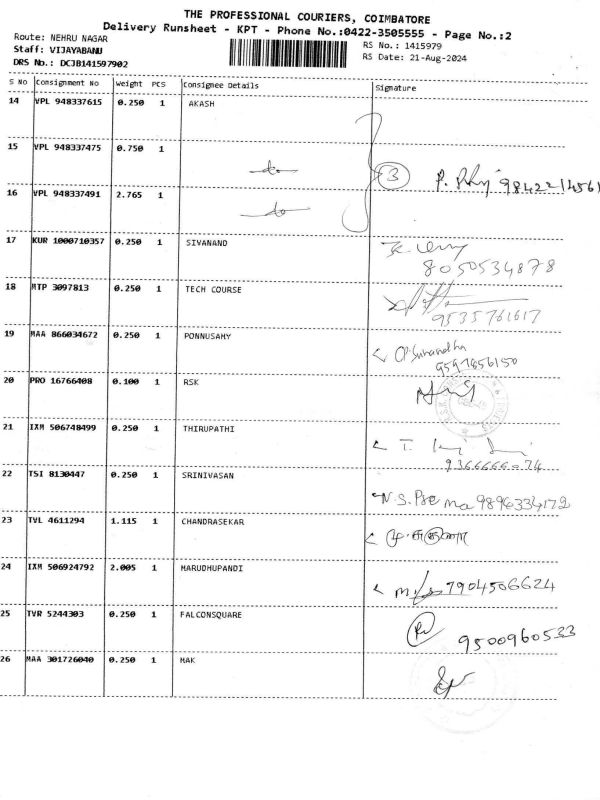 THE PROFESSIONAL COURIERS, COIMBATORE
Delivery Runsheet - KPT - Phone No.:0422-3505555 - Page No.:2
Route: NEHRU NAGAR
RS No.: 1415979
Staff: VIJAYABANU
RS Date: 21-Aug-2024
DRS No.: DCJB141597902
S No Consignment No Weight PCS Consignee Details Signature
14 VPL 948337615 0.250 1 AKASH
15 VPL 948337475 0.750 1 do 3 P. 9842214561
16 VPL 948337491 2.765 1 do
17 KUR 1000710357 0.250 1 SIVANAND
8050534878
18 MTP 3097813 0.250 1 TECH COURSE
9535761617
19 MAA 866034672 0.250 1 PONNUSAMY
CP Sunandha
9597856150
20 PRO 16766408 0.100 1 RSK
21 IXM 506748499 0.250 1 THIRUPATHI
T.
22 TSI 8130447 0.250 1 SRINIVASAN
N.S. 9896334172
23 TVL 4611294 1.115 1 CHANDRASEKAR
24 IXM 506924792 2.005 1 MARUDHUPANDI
7904506624
25 TVR 5244303 0.250 1 FALCONSQUARE
9500960533
26 MAA 301726040 0.250 1 MAK